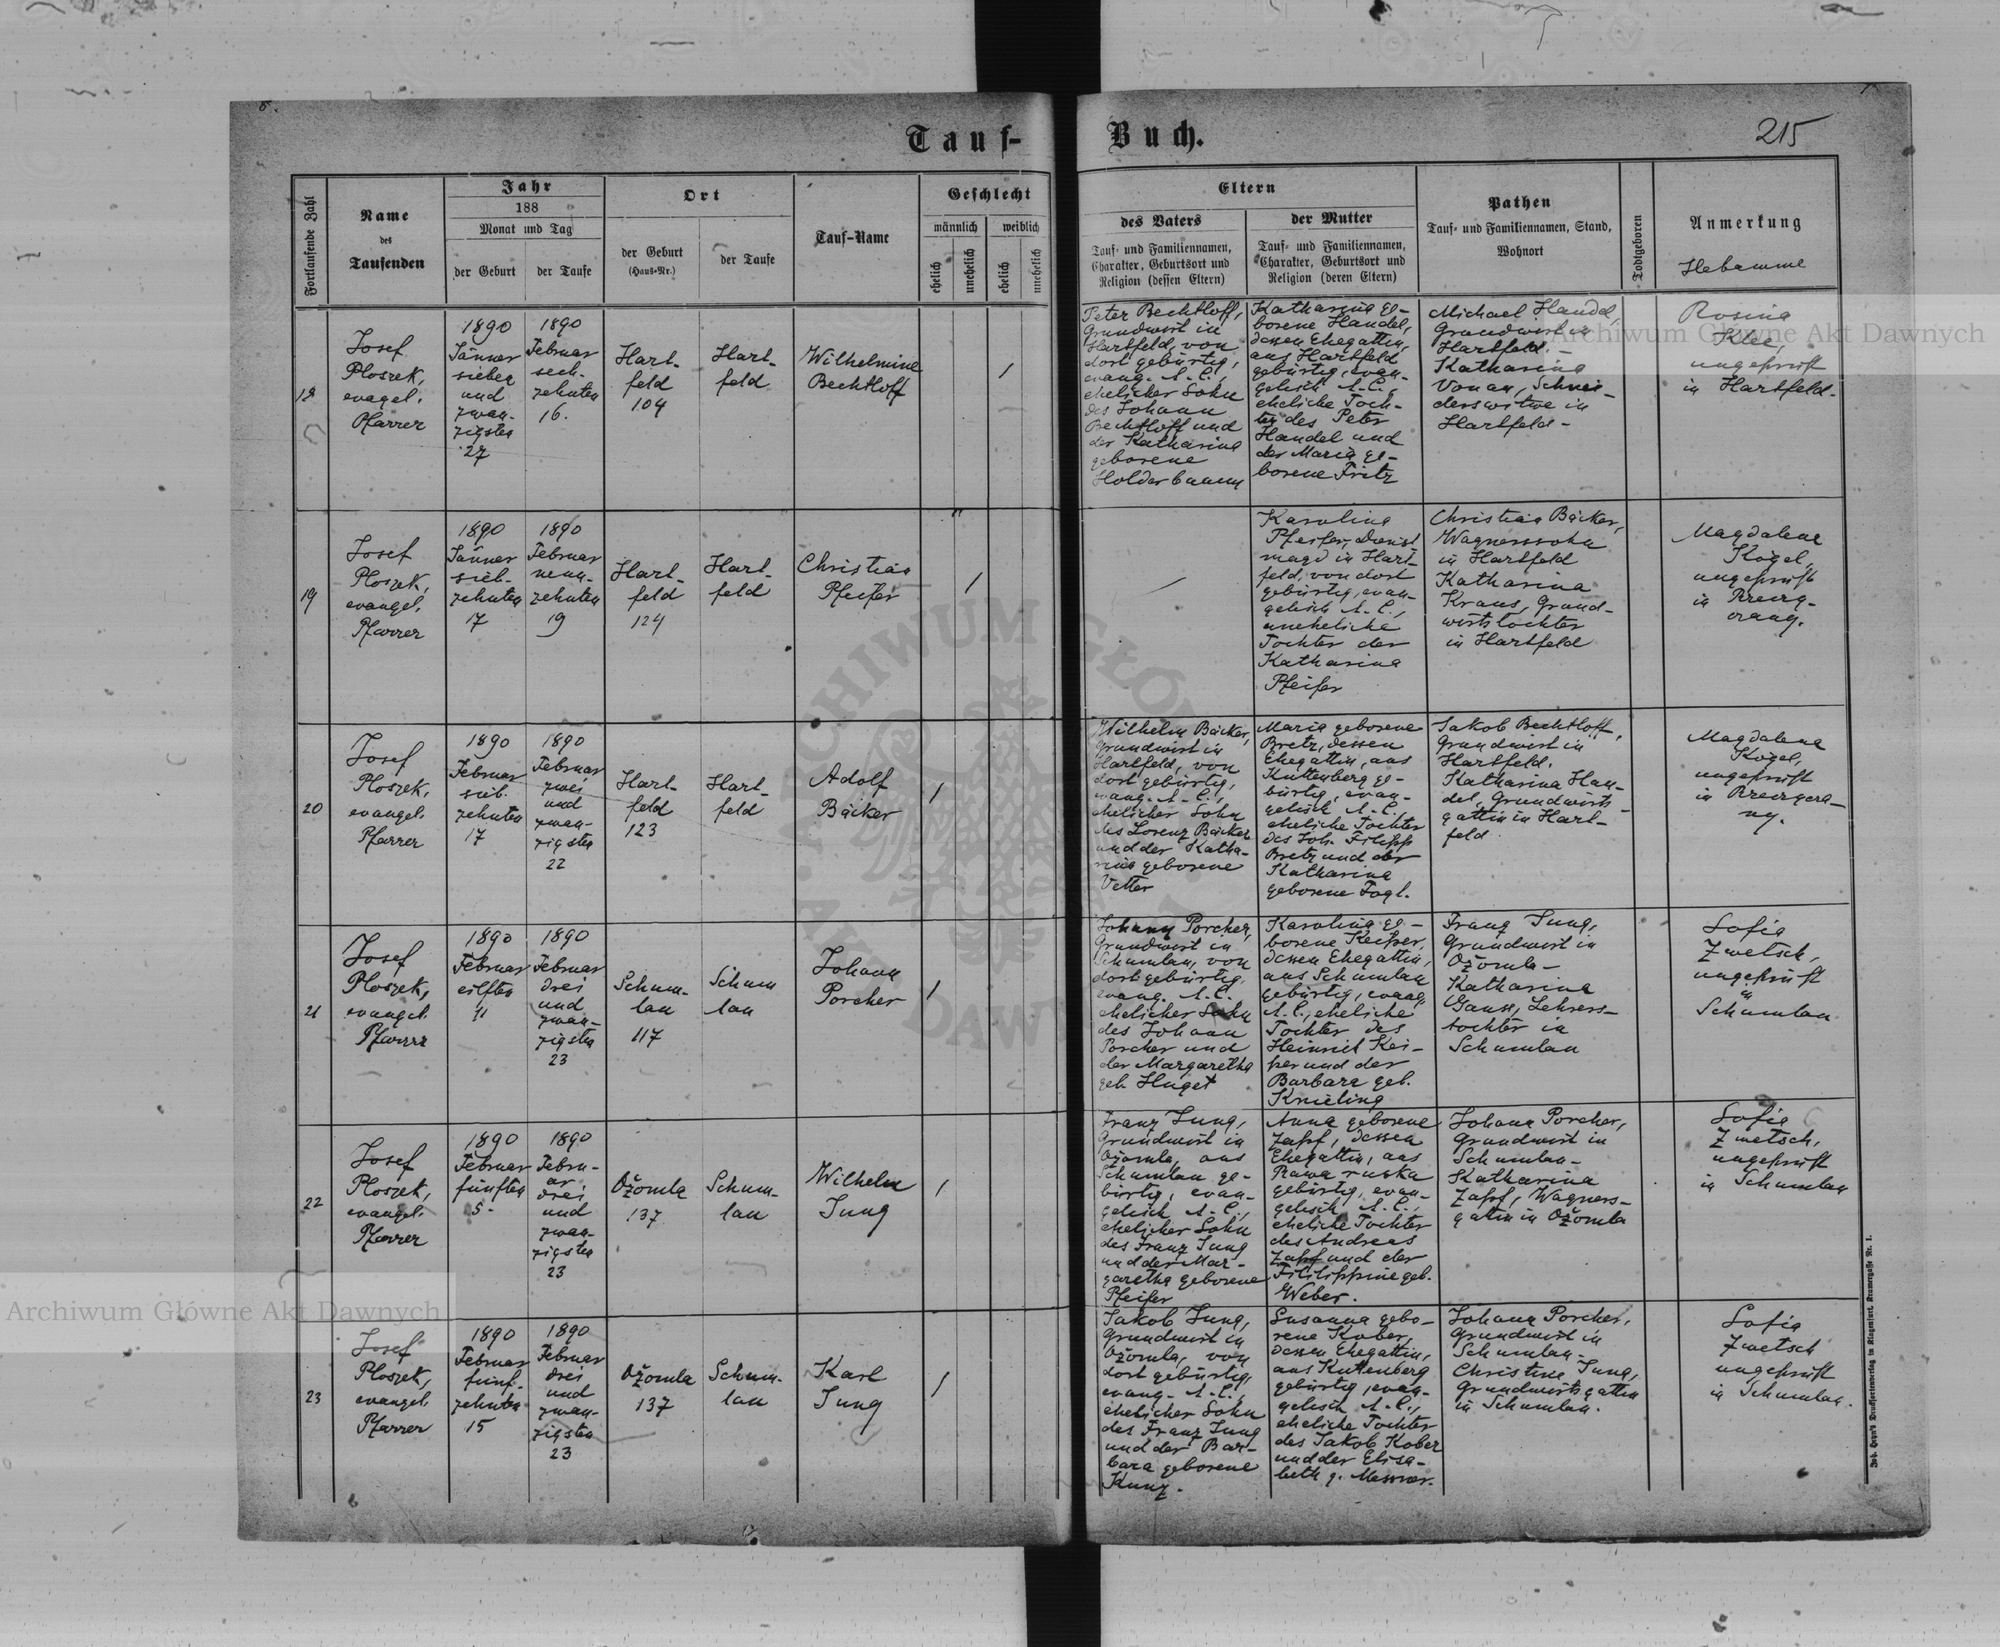 Tauf-Buch.
215
Fortlaufende Zahl
Name
des
Taufenden
Jahr
188
Monat und Tag
der Geburt
der Taufe
Ort
der Geburt
(Haus-Nr.)
der Taufe
Tauf-Name
Geschlecht
männlich
weiblich
ehelich
unehelich
ehelich
unehelich
Eltern
des Vaters
Tauf- und Familiennamen,
Charakter, Geburtsort und
Religion (dessen Eltern)
der Mutter
Tauf- und Familiennamen,
Charakter, Geburtsort und
Religion (deren Eltern)
Pathen
Tauf- und Familiennamen, Stand,
Wohnort
Todtgeboren
Anmerkung
Hebamme
18
Josef
Ploszek,
evagel.
Pfarrer
1890
Jänner
sieben
und
zwan-
zigsten
27
1890
Februar
sech-
zehnten
16.
Hart-
feld
104
Hart-
feld
Wilhelmine
Bechtloff
/
Peter Bechtloff,
Grundwirt in
Hartfeld, von
dort gebürtig,
evang. A.C.,
ehelicher Sohn
des Johann
Bechtloff und
der Katharina
geborene
Holderbaum
Katharina ge-
borene Handel,
dessen Ehegattin,
aus Hartfeld
gebürtig, evan-
gelisch A.C.,
eheliche Toch-
ter des Peter
Handel und
der Maria ge-
borene Fritz
Michael Handel,
Grundwirt in
Hartfeld. -
Katharina
Vonau, Schnei-
derswitwe in
Hartfeld -
Rosina
Klee,
ungeprüft
in Hartfeld.
19
Josef
Ploszek,
evangel.
Pfarrer
1890
Jänner
sieb-
zehnten
17
1890
Februar
neun-
zehnten
19
Hart-
feld
124
Hart-
feld
Christian
Pfeifer
/
Karolina
Pfeifer, Dienst-
magd in Hart-
feld, von dort
gebürtig, evan-
gelisch A.C.,
uneheliche
Tochter der
Katharina
Pfeifer
Christian Bäcker,
Wagnerssohn
in Hartfeld
Katharina
Kraus, Grund-
wirtstochter
in Hartfeld
Magdalena
Kogel,
ungeprüft
in
20
Josef
Ploszek,
evangel.
Pfarrer
1890
Februar
sieb-
zehnten
17
1890
Februar
zwei
und
zwan-
zigsten
22
Hart-
feld
123
Hart-
feld
Adolf
Bäcker
/
Wilhelm Bäcker,
Grundwirt in
Hartfeld, von
dort gebürtig,
evang. A.C.,
ehelicher Sohn
des Lorenz Bäcker
und der Katha-
rina geborene
Vetter
Maria geborene
Bretz, dessen
Ehegattin, aus
Kuttenberg ge-
bürtig, evan-
gelisch A.C.
eheliche Tochter
des Joh. Filipp
Bretz und der
Katharina
geborene Fogl.
Jakob Bechtloff,
Grundwirt in
Hartfeld.
Katharina Han-
del, Grundwirts-
gattin in Hart-
feld
Magdalena
Kogel,
ungeprüft
in
21
Josef
Ploszek,
evangel.
Pfarrer
1890
Februar
eilften
11
1890
Februar
drei
und
zwan-
zigsten
23
Schum-
lau
117
Schum
lau
Johann
Porcher
/
Johann Porcher,
Grundwirt in
Schumlau, von
dort gebürtig,
evang. A.C.
ehelicher Sohn
des Johann
Porcher und
der Margaretha
geb. Huget
Karolina ge-
borene Keiper,
dessen Ehegattin,
aus Schumlau
gebürtig, evang.
A.C., eheliche
Tochter des
Heinrich Kei-
per und der
Barbara geb.
Knieling
Franz Jung,
Grundwirt in
Ožomla -
Katharina
Gans, Lehrers-
tochter in
Schumlau
Sofia
Zwetsch,
ungeprüft
in
Schumlau
22
Josef
Ploszek,
evangel.
Pfarrer
1890
Februar
fünften
5.
1890
Febru-
ar
drei
und
zwan-
zigsten
23
Ožomla
137
Schum-
lau
Wilhelm
Jung
/
Franz Jung,
Grundwirt in
Ožomla, aus
Schumlau ge-
bürtig, evan-
gelisch A.C.,
ehelicher Sohn
des Franz Jung
und der Mar-
garetha geborene
Pfeifer
Anna geborene
Zapf, dessen
Ehegattin, aus
Rawa ruska
gebürtig, evan-
gelisch A.C.,
eheliche Tochter
des Andreas
Zapf und der
Filippine geb.
Weber.
Johann Porcher,
Grundwirt in
Schumlau -
Katharina
Zapf, Wagners-
gattin in Ožomla
Sofia
Zwetsch,
ungeprüft
in Schumlau
23
Josef
Ploszek,
evangel.
Pfarrer
1890
Februar
fünf-
zehnten
15
1890
Februar
drei
und
zwan-
zigsten
23
Ožomla
137
Schum-
lau
Karl
Jung
/
Jakob Jung,
Grundwirt in
Ožomla, von
dort gebürtig,
evang. A.C.,
ehelicher Sohn
des Franz Jung
und der Bar-
bara geborene
Kunz.
Susanna gebo-
rene Kober,
dessen Ehegattin,
aus Kuttenberg
gebürtig, evan-
gelisch A.C.,
eheliche Tochter
des Jakob Kober
und der Elisa-
beth g.
Johann Porcher,
Grundwirt in
Schumlau -
Christine Jung,
Grundwirtsgattin
in Schumlau.
Sofia
Zwetsch
ungeprüft
in Schumlau.
Joh. Heyn's Drucksortenverlag in Klagenfurt, Kramergasse Nr. 1.
Archiwum Główne Akt Dawnych
Archiwum Główne Akt Dawnych